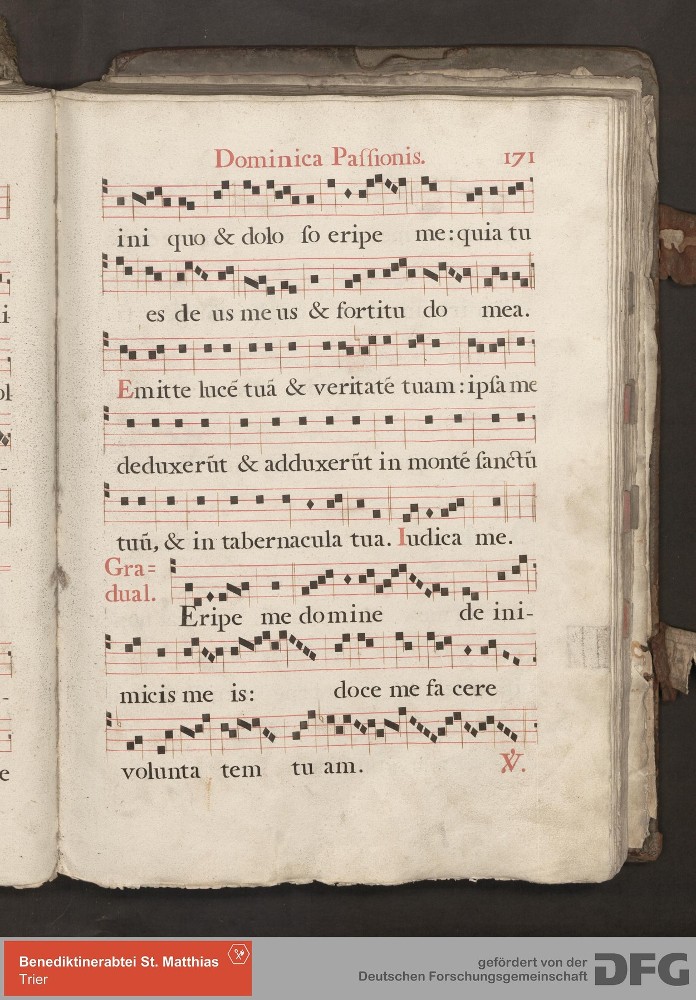 Dominica Paſſionis. 171
ini quo & dolo ſo eripe me: quia tu
es de us me us & fortitu do mea.
Emitte lucē tuā & veritatē tuam: ipſa me
deduxerūt & adduxerūt in montē ſanctū
tuū, & in tabernacula tua. Iudica me.
Gra=
dual.
Eripe me domine de ini-
micis me is: doce me fa cere
volunta tem tu am. ℣.
Benediktinerabtei St. Matthias
Trier
gefördert von der
Deutschen Forschungsgemeinschaft
DFG